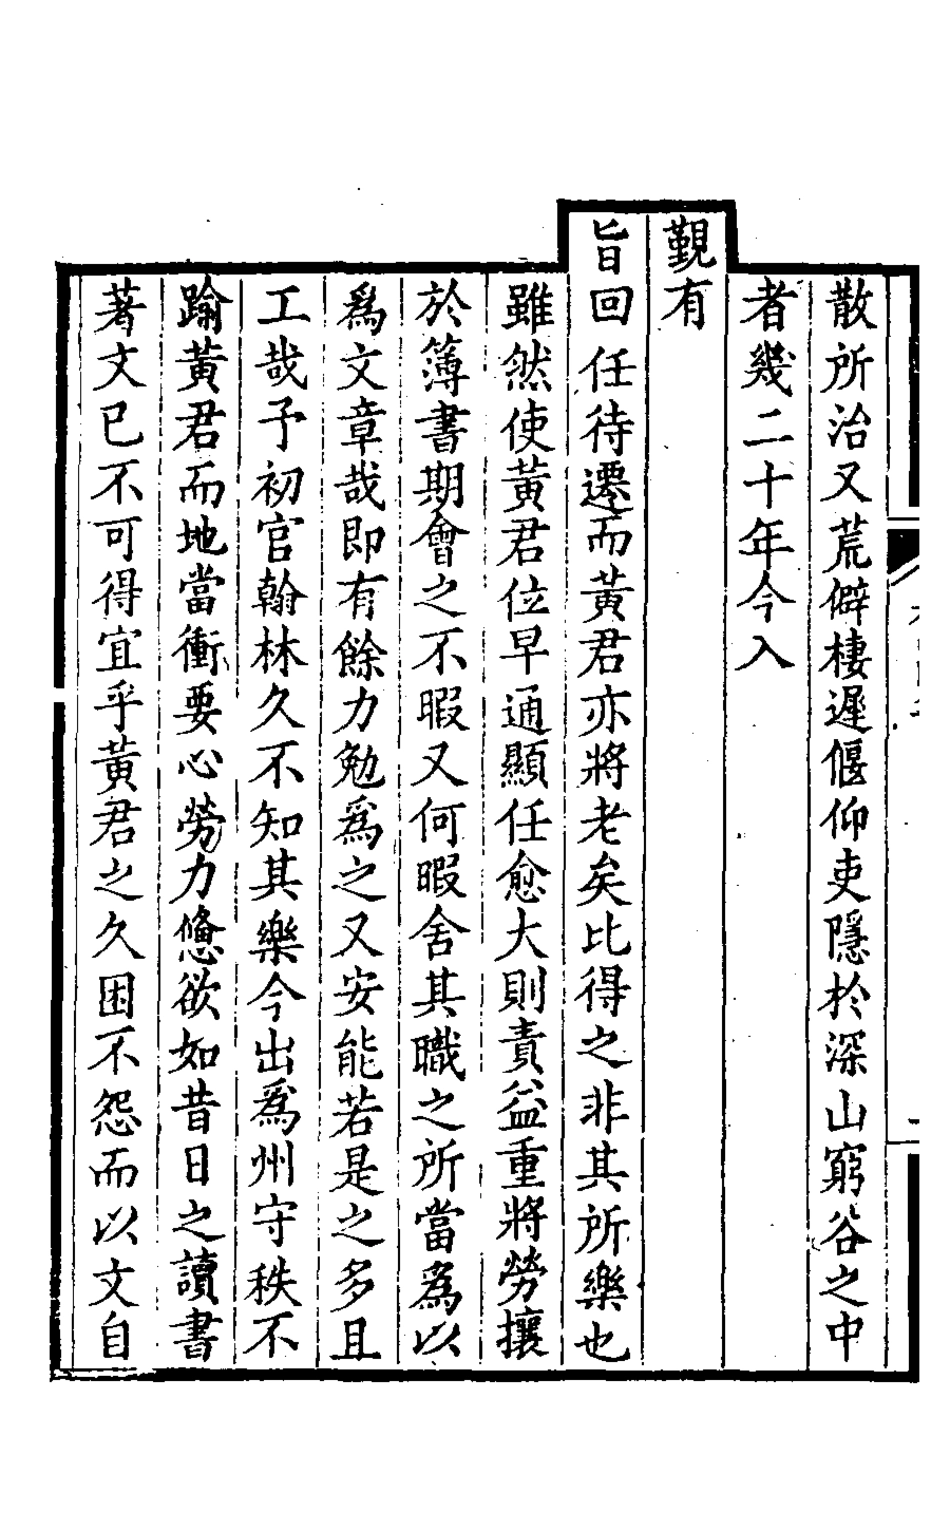 散所治又荒僻棲遲偃仰吏隱於深山窮谷之中
者幾二十年今入
覲有
旨回任待遷而黃君亦將老矣比得之非其所樂也
雖然使黃君位早通顯任愈大則責益重將勞攘
於簿書期會之不暇又何暇舍其職之所當為以
爲文章哉即有餘力勉爲之又安能若是之多且
工哉予初官翰林久不知其樂今出爲州守秩不
踰黃君而地當衝要心勞力憊欲如昔日之讀書
著文已不可得宜乎黃君之久困不怨而以文自